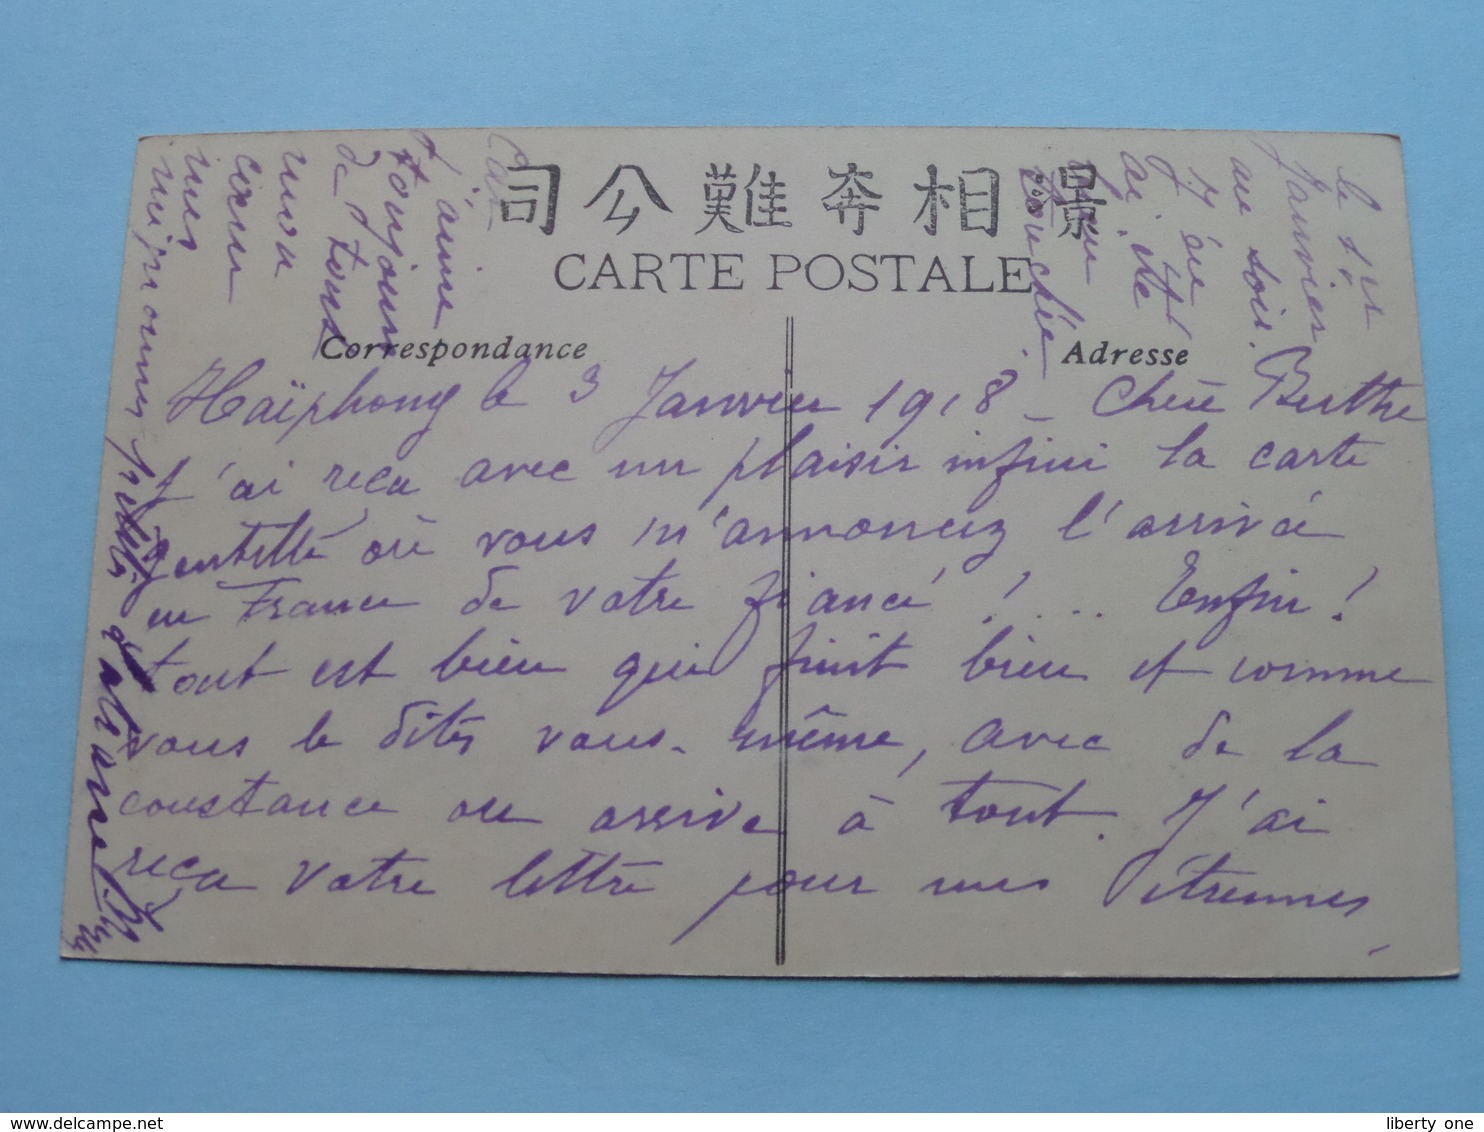 司公難奔相景
CARTE POSTALE
Correspondance
Adresse
Haïphong le 3 Janvier 1918 - Chère Berthe
J'ai reçu avec un plaisir infini la carte
gentille où vous m'annoncez l'arrivée
en France de votre fiancé ! ... Enfin !
tout est bien qui finit bien et comme
vous le dites vous-même, avec de la
constance on arrive à tout. J'ai
reçu votre lettre pour mes étrennes,
le 1er
Janvier
au soir.
J'y
ai été
touchée
car
j'aime
toujours
de tout
mon
cœur
mes
mignonnes petites
liberty one